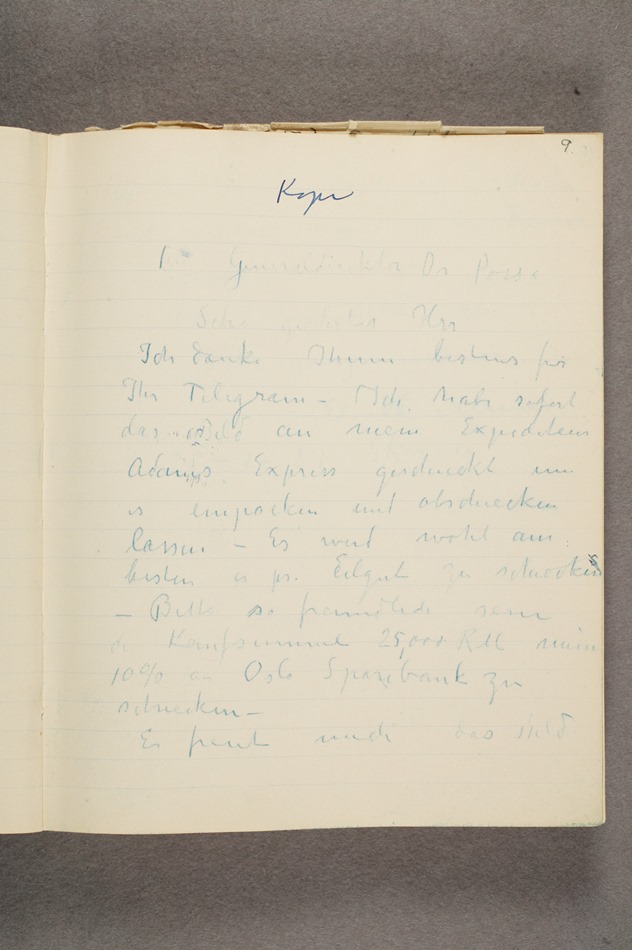 9.
Kopi
Generaldirektor Dr Posse
Sehr geehrter Herr
Ich danke Ihnen bestens für
Ihr Telegram – Ich habe sofort
das Bild an mein Expediteur
Adams Express geschickt um
es einpacken und abschicken
lassen – Es wird wohl am
besten es pr. Eilgut zu schicken
– Bitte so freundlich sein
die Kaufsummme 25,000 RM minus
10% an Oslo Sparebank zu
schicken –
Es freut mich das Bild